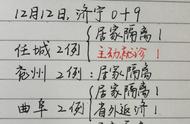 12月12日,济宁 0+9
居家隔离1
任城2例
主动就诊1
兖州2例:居家隔离
居家隔离1
曲阜2例
省外返济1